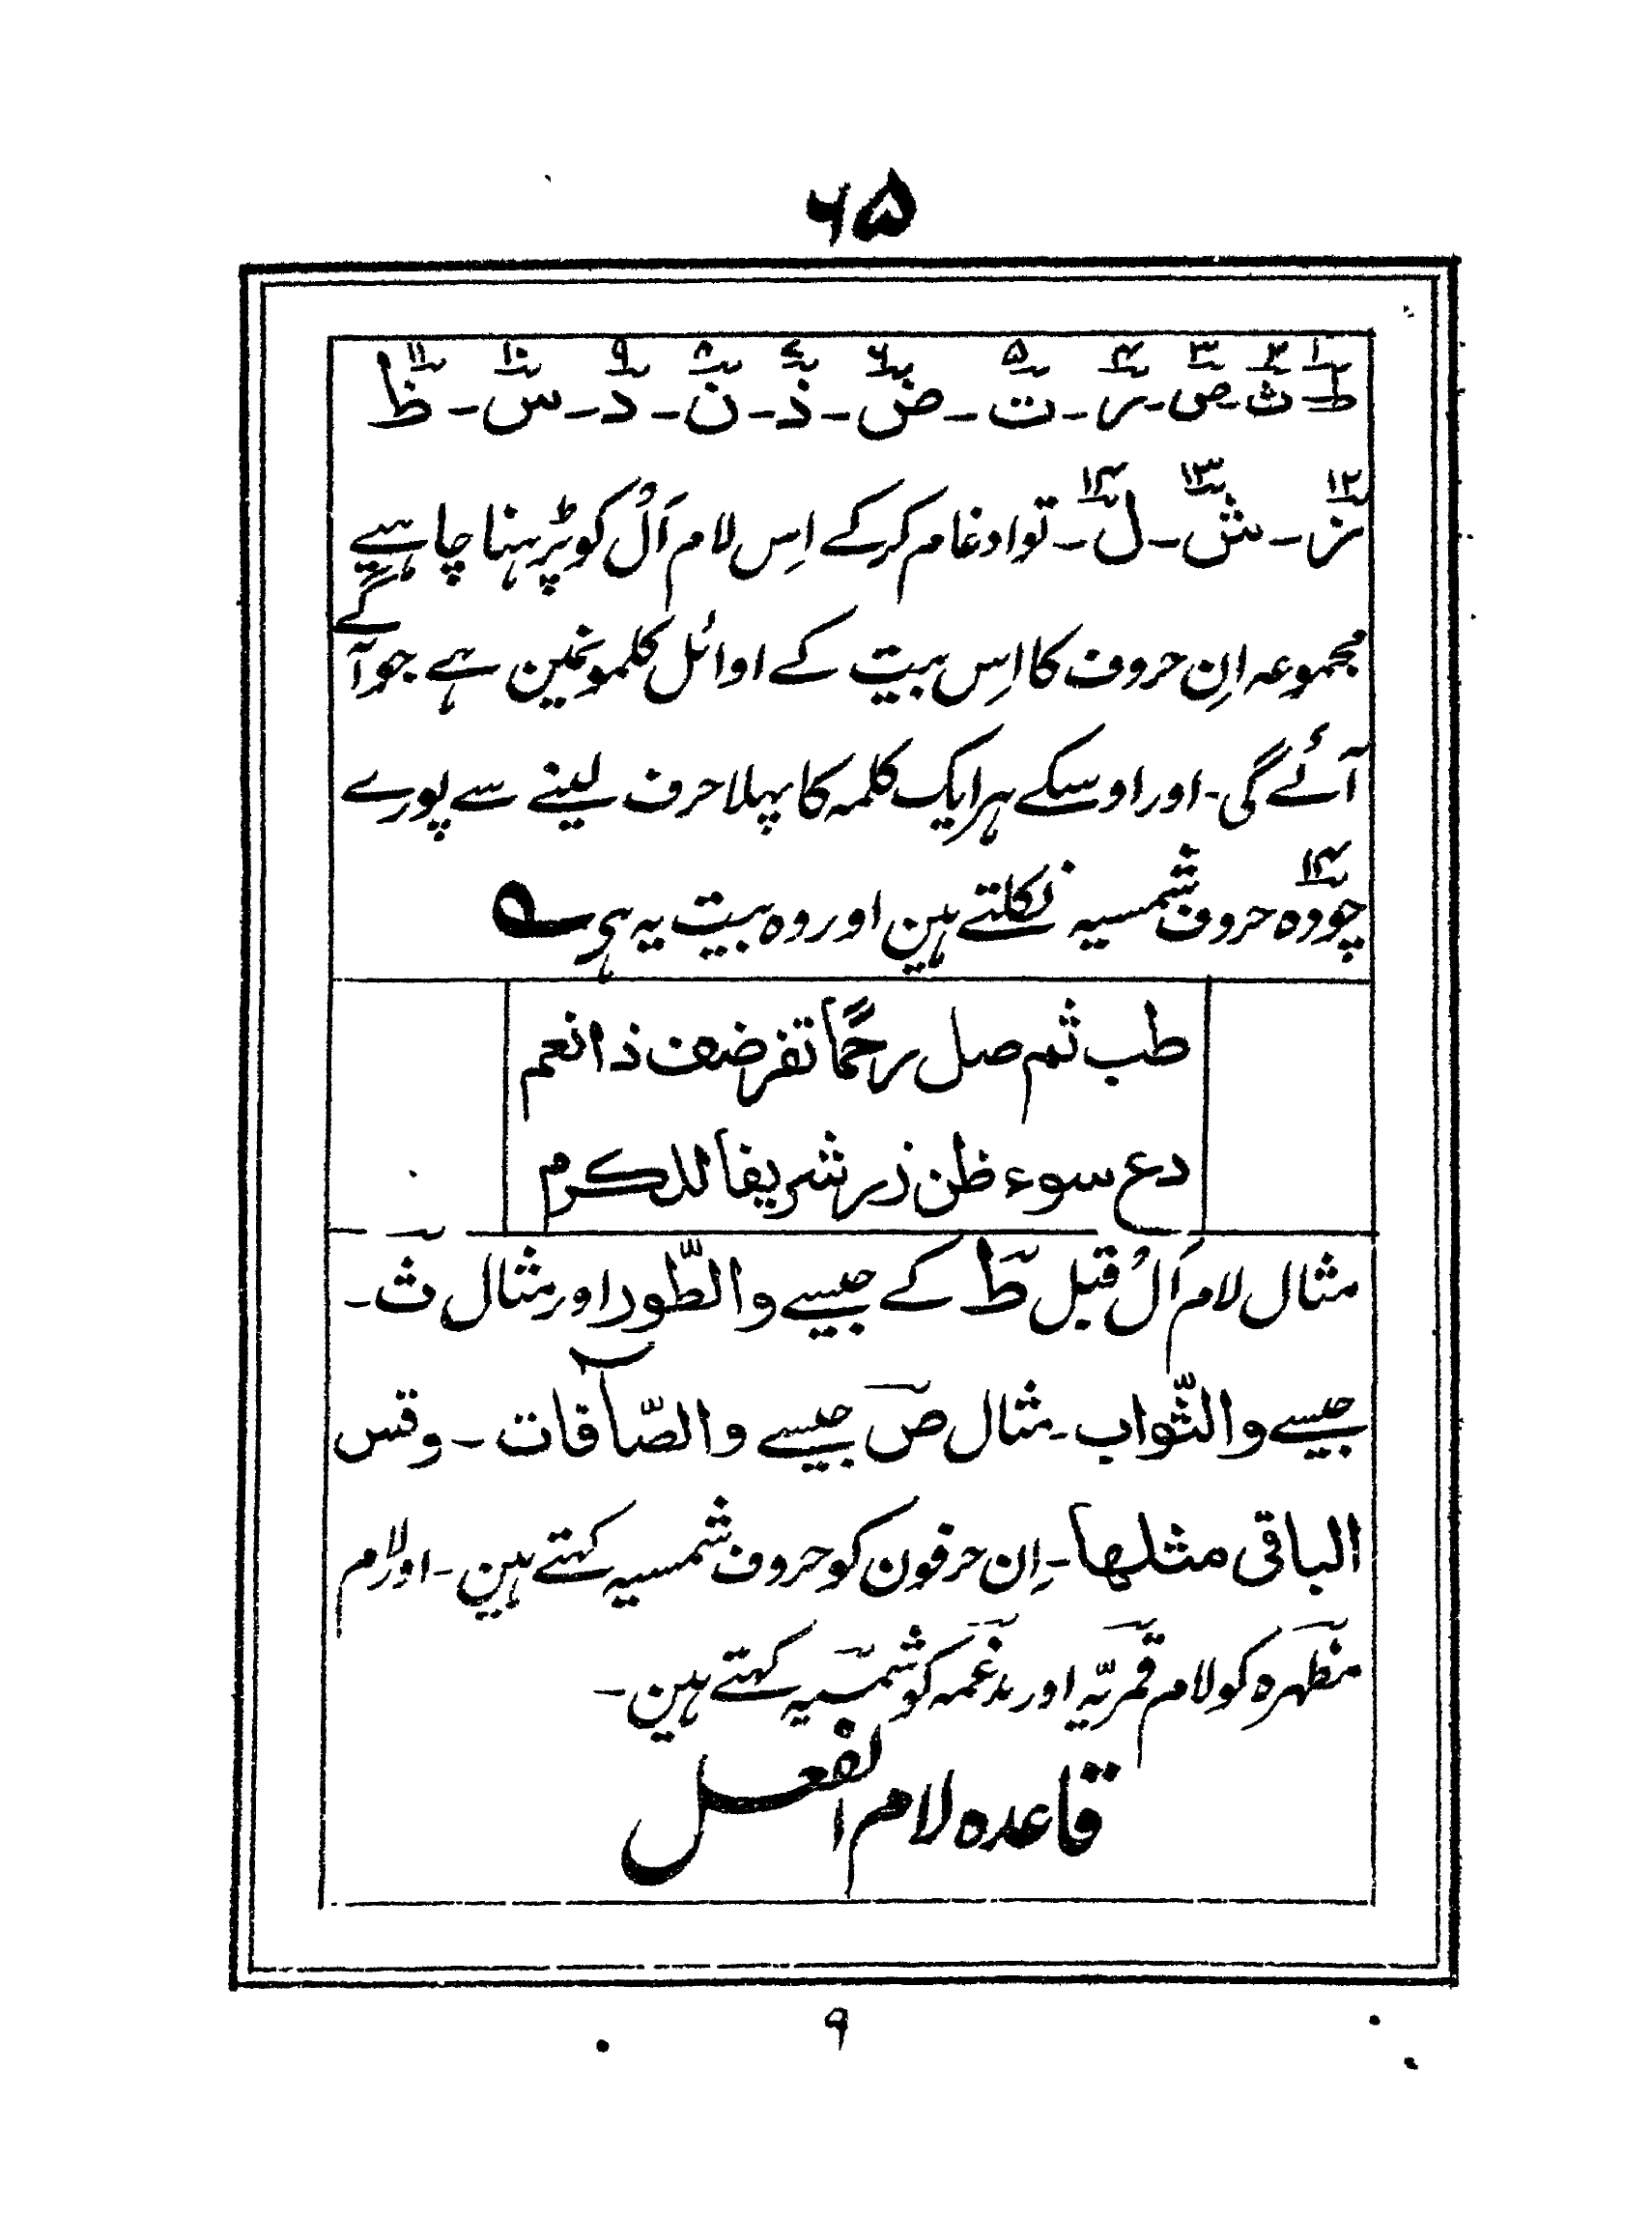 ۶۵
۱ ۲ ۳ ۴ ۵ ۶ ۷ ۸ ۹ ۱۰ ۱۱
ط - ث - ص - ر - ت - ض - ذ - ن - د - س - ظ
۱۲ ۱۳ ۱۴
ز - ش - ل - تو ادغام کر کے اِس لام اَلْ کو پڑہنا چاہیے
مجموعہ اِن حروف کا اِس بیت کے اوائل کلمونمین ہے جو آگے
آئے گی - اور اوسکے ہر ایک کلمہ کا پہلا حرف لینے سے پورے
چودہ ۱۴ حروف شمسیہ نکلتے ہین اور وہ بیت یہ ہی
طب ثم صل رحمًا تفز ضف ذا نعم
دع سوء ظن زر شریفا للکرم
مثال لام اَلْ قبل ط کے جیسے والطّور اور مثال ث -
جیسے والثّواب - مثال ص جیسے والصّآفات - وقس
الباقی مثلها - اِن حرفون کو حروف شمسیہ کہتے ہین - اور لام
مظہرہ کو لام قمریّہ اور مدغمہ کو شمسیہ کہتے ہین -
قاعدہ لام الفعل
۹